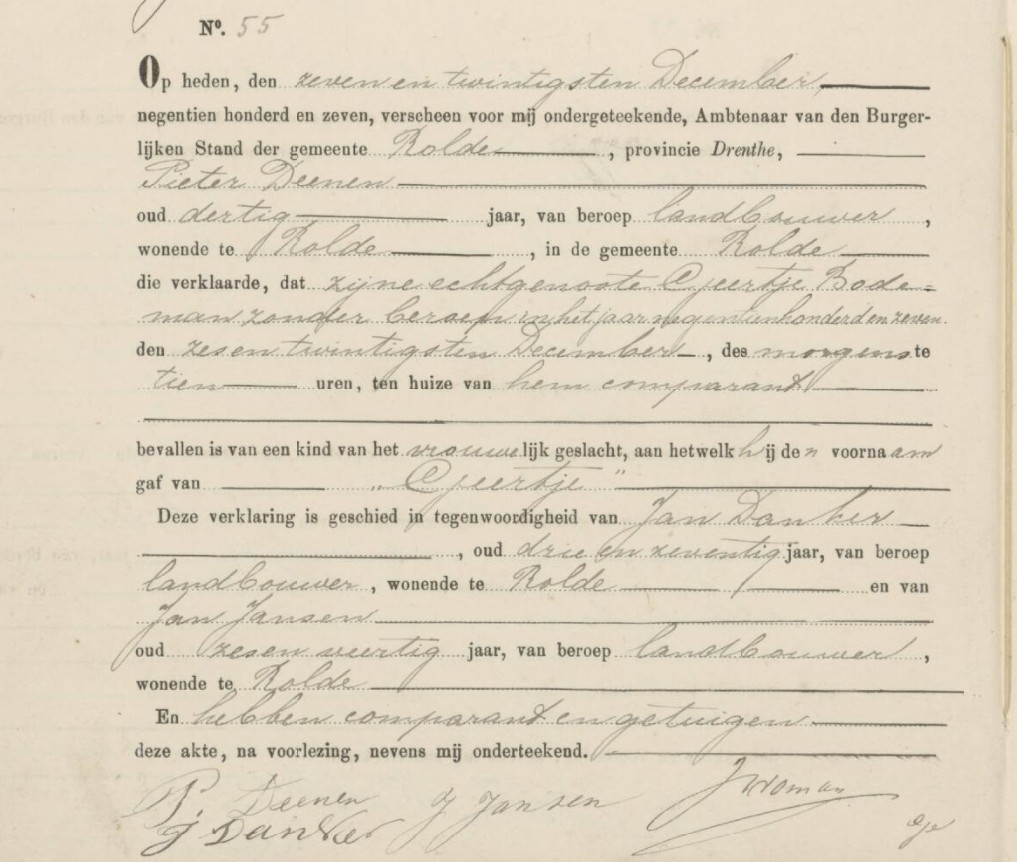 Nº. 55
Op heden, den zeven en twintigsten December,
negentien honderd en zeven, verscheen voor mij ondergeteekende, Ambtenaar van den Burger-
lijken Stand der gemeente Rolde, provincie Drenthe,
Pieter Deenen
oud dertig jaar, van beroep landbouwer,
wonende te Rolde, in de gemeente Rolde
die verklaarde, dat zijne echtgenoote Geertje Bode=
man zonder beroep in het jaar negentienhonderd en zeven
den zes en twintigsten December, des morgens te
tien uren, ten huize van hem comparant
bevallen is van een kind van het vrouwelijk geslacht, aan hetwelk hij den voornaam
gaf van „Geertje"
Deze verklaring is geschied in tegenwoordigheid van Jan Danker
, oud drie en zeventig jaar, van beroep
landbouwer, wonende te Rolde en van
Jan Jansen
oud zes en veertig jaar, van beroep landbouwer,
wonende te Rolde
En hebben comparant en getuigen
deze akte, na voorlezing, nevens mij onderteekend.
P. Deenen J Jansen
J Danker